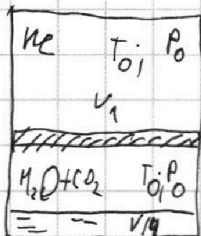 He T₀; P₀
V₁
H₂O+CO₂ T₀; P₀
V/4